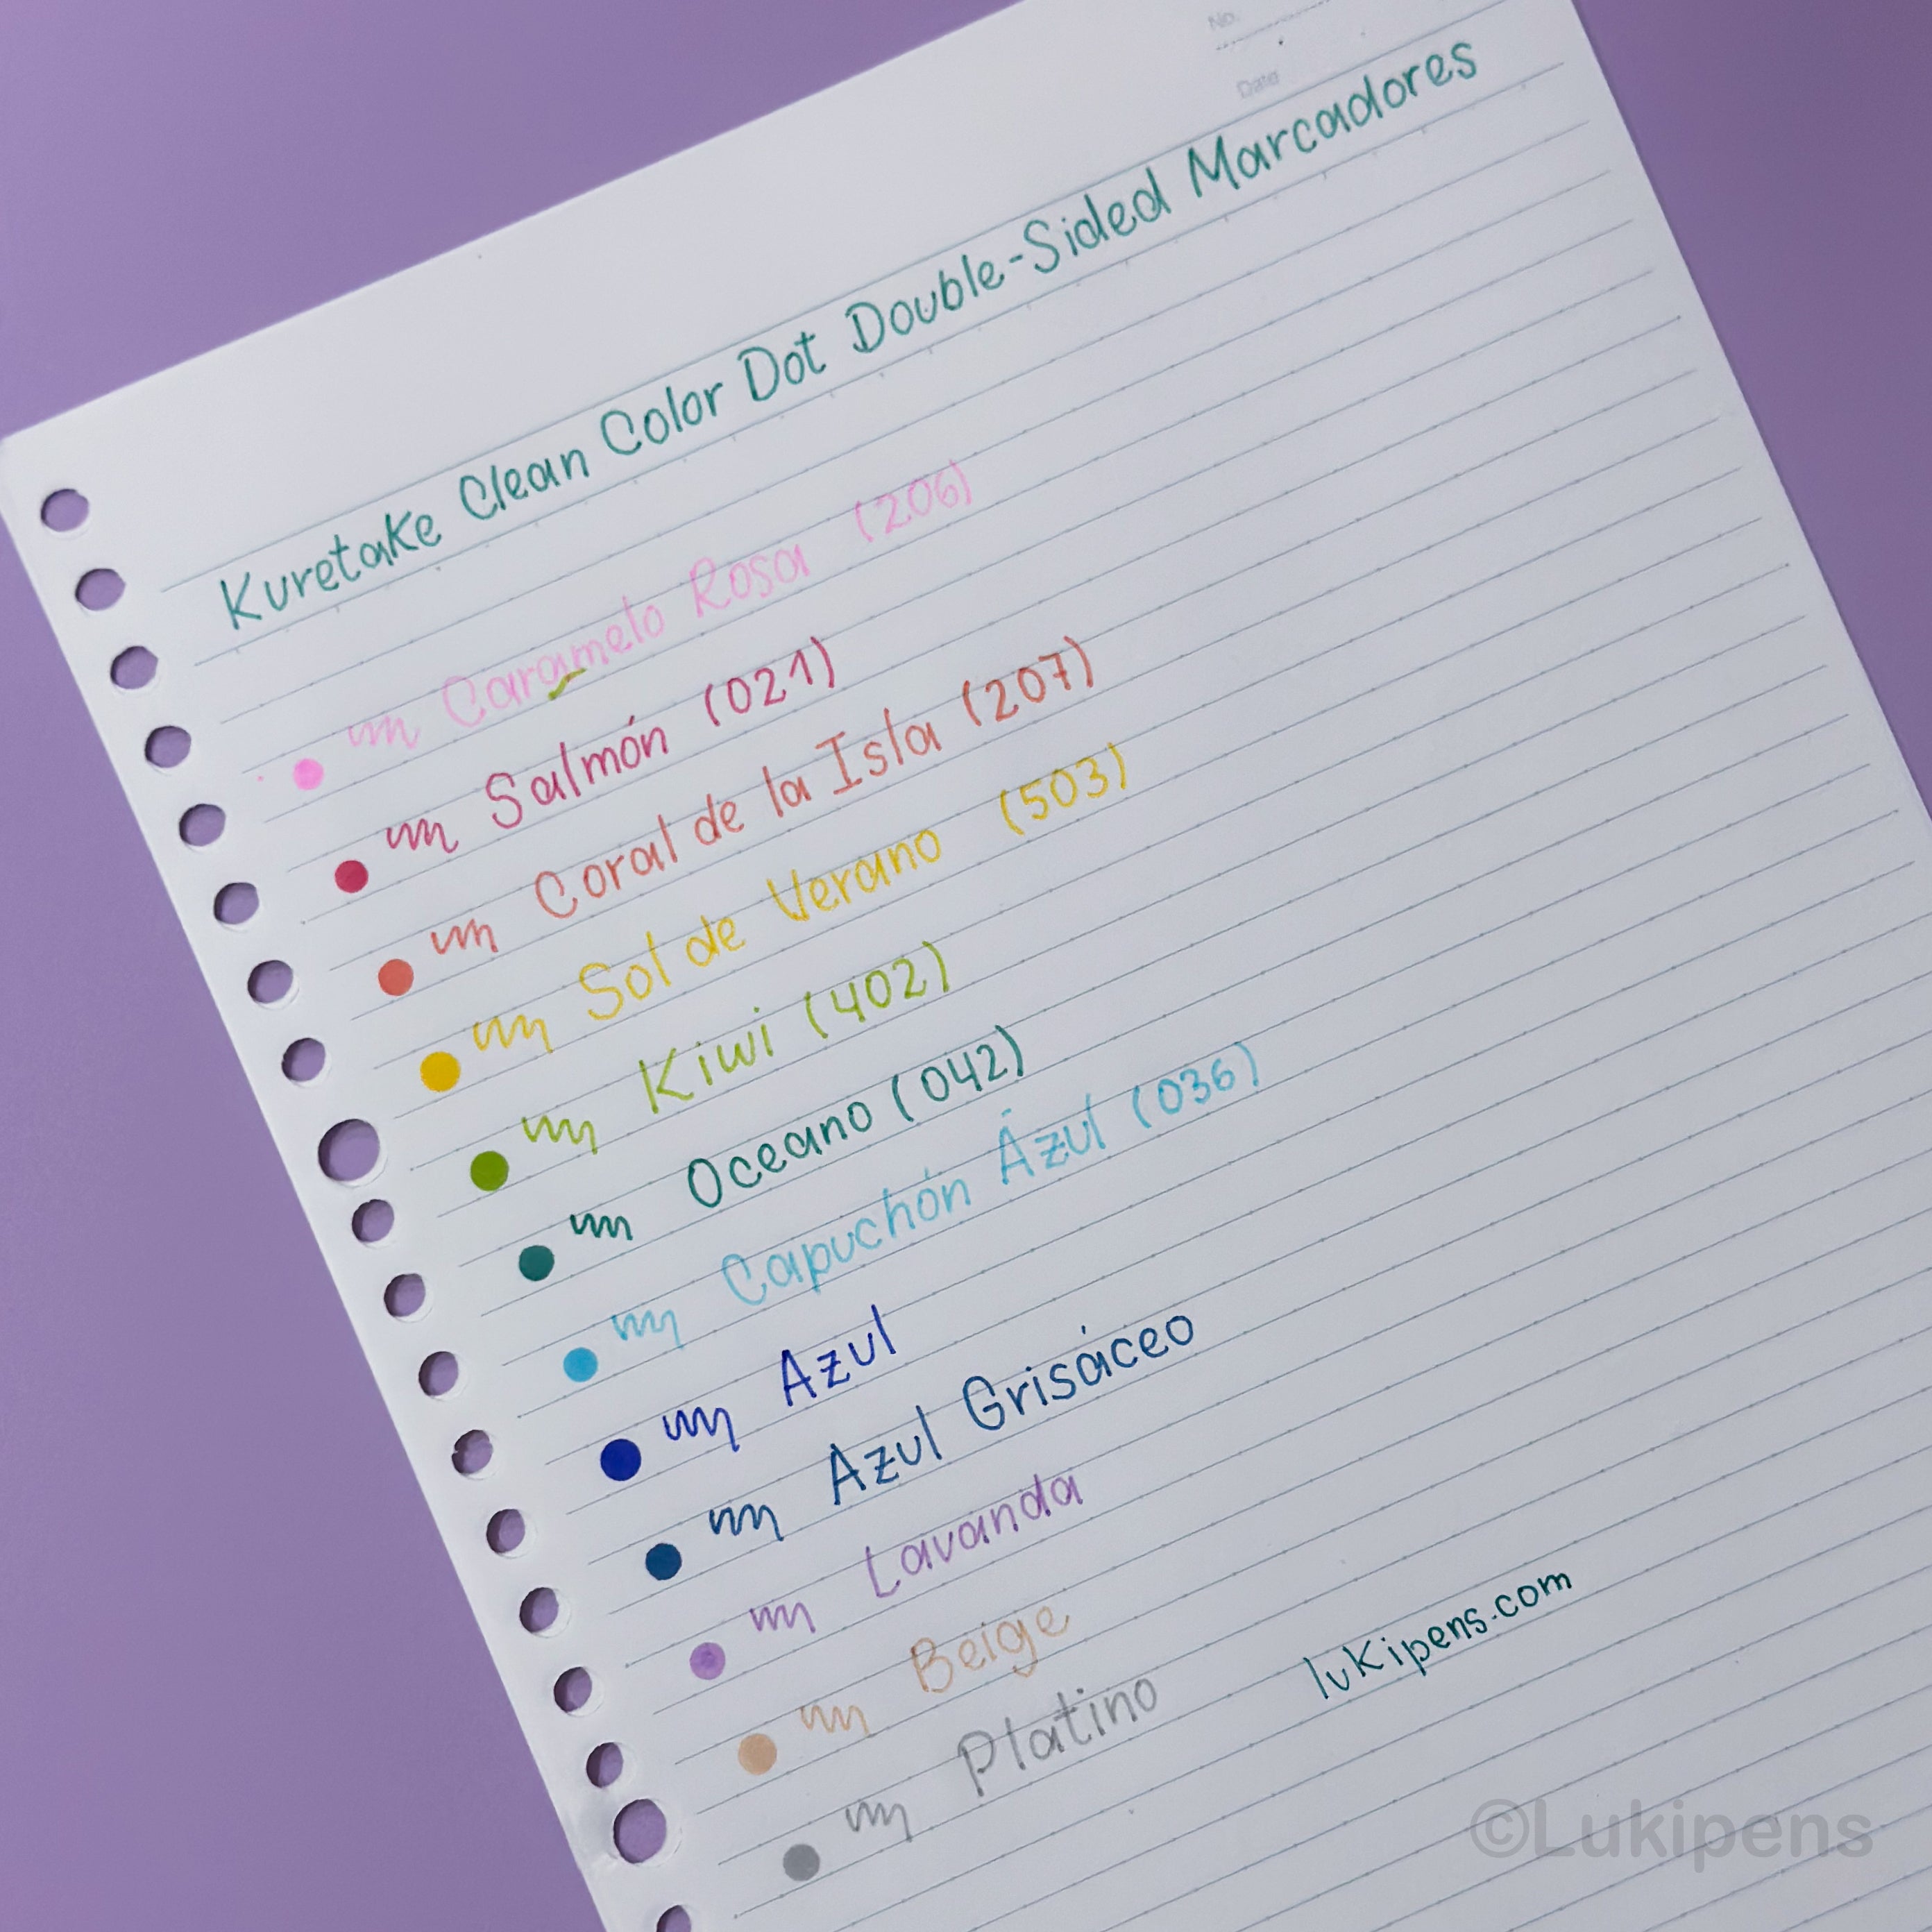 No.
Date
Kuretake Clean Color Dot Double-Sided Marcadores
Caramelo Rosa (206)
Salmón (021)
Coral de la Isla (207)
Sol de Verano (503)
Kiwi (402)
Oceano (042)
Capuchón Ázul (036)
Azul
Azul Grisáceo
Lavanda
Beige
Platino
lukipens.com
©Lukipens